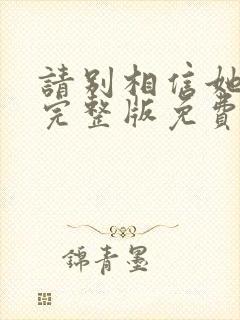 請別相信她
完整版免費
錦青墨